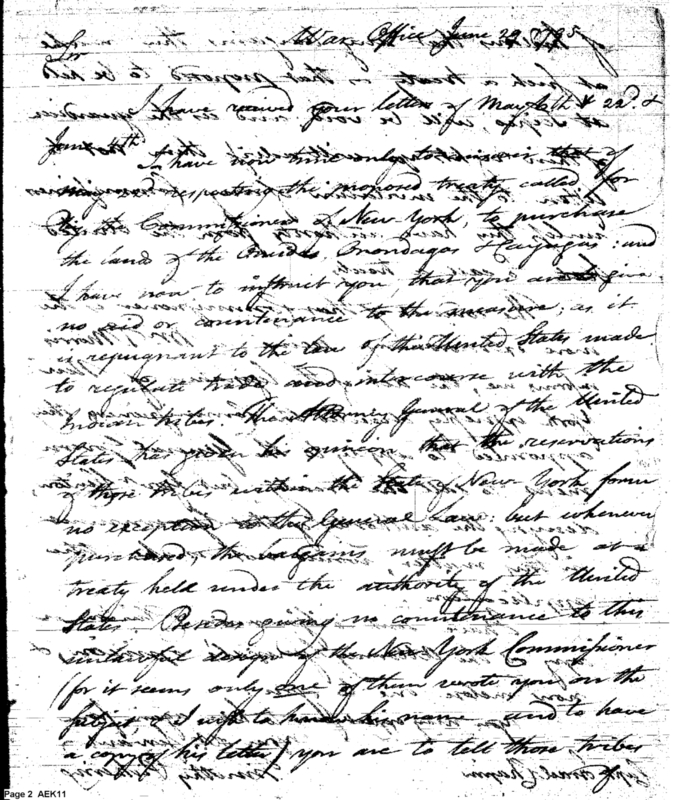 War Office June 29. 1795
Sir
I have received your letters of May 6th & 22d. &
June 4th. I have now time only to answer that of
respecting the proposed treaty called for
by the Commissioners of New-York, to purchase
the lands of the Oneidas, Onondagas & Cayugas: and
I have now to instruct you, that you are to give
no aid or countenance to the measure; as it
is repugnant to the law of the United States made
to regulate trade and intercourse with the
Indian tribes. The Attorney General of the United
States has given his opinion that the reservations
of those tribes within the State of New York form
no exception to the General Law: but whenever
purchased, the bargains must be made at a
treaty held under the authority of the United
States. Besides giving no countenance to this
unlawful design of the New York Commissioner
(for it seems only one of them wrote you on the
subject & I wish to know his name and to have
a copy of his letter) you are to tell those tribes
Page 2 AEK11